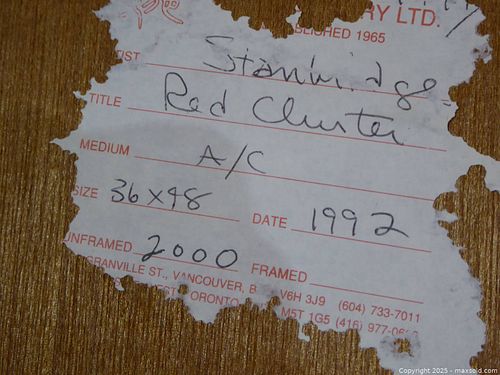 RY LTD.
BLISHED 1965
IST Stannidge
TITLE Red Cluster
MEDIUM A/C
SIZE 36x48 DATE 1992
UNFRAMED 2000 FRAMED
GRANVILLE ST., VANCOUVER, B V6H 3J9 (604) 733-7011
EST ORONTO M5T 1G5 (416) 977-06
Copyright 2025 - maxsold.com